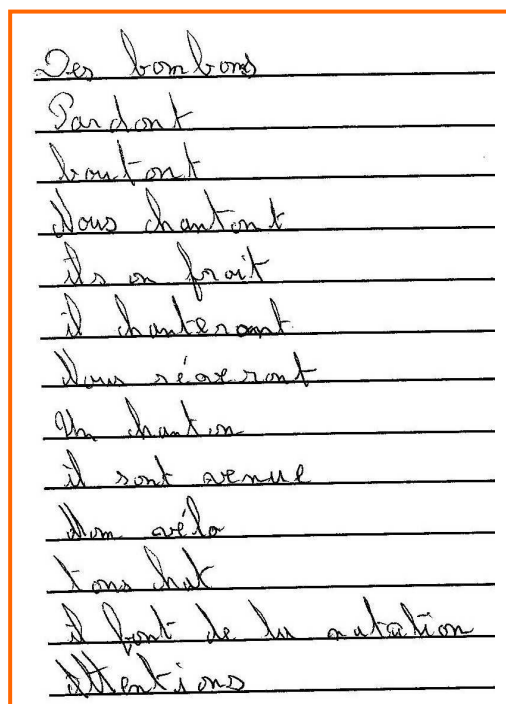 Des bombons
Pardont
boutont
Nous chantont
ils on froit
il chanteront
Nous réveront
Un chanton
il sont venue
Mom vélo
tons chat
il font de la natation
Attentions